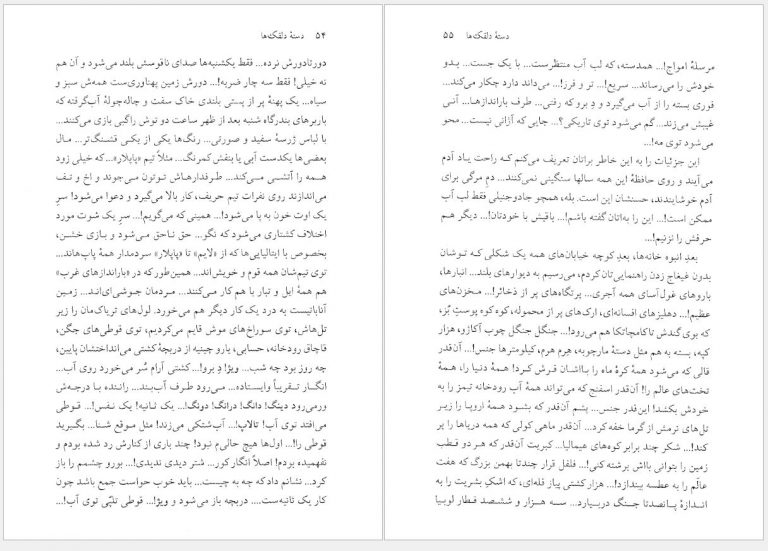 ۵۴ دستهٔ دلقک‌ها
دورتادورش نرده... فقط یکشنبه‌ها صدای ناقوسش بلند می‌شود و آن هم
نه خیلی! فقط سه چار ضربه!... دورش زمین پهناوری‌ست همه‌ش سبز و
سیاه... یک پهنهٔ پر از پستی بلندی خاک سفت و چاله‌چولهٔ آب‌گرفته که
باربرهای بندرگاه شنبه بعد از ظهر ساعت دو توش راگبی بازی می‌کنند...
با لباس ژرسهٔ سفید و صورتی... رنگ‌ها یکی از یکی قشنگ‌تر... مال
بعضی‌ها یکدست آبی یا بنفش کمرنگ... مثلاً تیم «پاپلار»...که خیلی زود
همه را آتشی می‌کند... طرفدارهاش توتون می‌جوند و اخ و تف
می‌اندازند روی نفرات تیم حریف، کار بالا می‌گیرد و دعوا می‌شود! سرِ
یک اوت خون به پا می‌شود!... همینی که می‌گویم!... سر یک شوت مورد
اختلاف کشتاری می‌شود که نگو... حق ناحق می‌شود و بازی خشن،
بخصوص با ایتالیایی‌ها که از «لایم» تا «پاپلار» سردمدار همهٔ پاپ‌هاند...
توی تیم‌شان همه قوم و خویش‌اند... همین‌طور که در «باراندازهای غرب»
هم همهٔ ایل و تبار با هم کار می‌کنند... مردمان جوشی‌ای‌اند... زمین
آناباتیست به درد یک کار دیگر هم می‌خورد. لول‌های تریاک‌مان را زیر
تل‌هاش، توی سوراخ‌های موش قایم می‌کردیم، توی قوطی‌های جگن،
قاچاق رودخانه، حسابی، یارو چینیه از دریچهٔ کشتی می‌انداختشان پایین،
چه روز بود چه شب... ویژ! دِ برو!... کشتی آرام سُر می‌خورد روی آب...
انگار تقریباً وایستاده... می‌رود طرف آب‌بند... راننده با درجه‌ش
ورمی‌رود دینگ! دانگ! درانگ! دونگ!... یک ثانیه! یک نفس!... قوطی
می‌افتد توی آب! تالاپ!... آب‌شتکی می‌زند! مثل موقع شنا... بگیرید
قوطی را!... اول‌ها هیچ حالی‌م نبود! چند باری از کنارش رد شده بودم و
نفهمیده بودم! اصلاً انگار کور... شتر دیدی ندیدی!... بورو چشمم را باز
کرد... نشانم داد که چه به چیست... باید خوب حواست جمع باشد چون
کار یک ثانیه‌ست.... دریچه باز می‌شود و ویژ!... قوطی تلپّی توی آب!...
دستهٔ دلقک‌ها ۵۵
مرسلهٔ امواج!... همدسته، که لب آب منتظرست... با یک جست... یدو
خودش را می‌رساند... سریع!... تر و فرز!... می‌داند دارد چکار می‌کند...
فوری بسته را از آب می‌گیرد و دِ برو که رفتی... طرف باراندازها... آنی
غیبش می‌زند...گم می‌شود توی تاریکی؟... جایی که آژانی نیست... محو
می‌شود توی مه!...
این جزئیات را به این خاطر براتان تعریف می‌کنم که راحت یاد آدم
می‌آیند و روی حافظهٔ این همه سالها سنگینی نمی‌کنند... دمِ مرگی برای
آدم خوشایندند، حسنشان این است. بله، همچو جادوجنبلی فقط لب آب
ممکن است!... این را به‌اتان گفته باشم!... باقیش با خودتان!... دیگر هم
حرفش را نزنیم!...
بعدِ انبوه خانه‌ها، بعدِ کوچه خیابان‌های همه یک شکلی که توشان
بدون غیغاج زدن راهنمایی‌تان کردم، می‌رسیم به دیوارهای بلند... انبارها،
باروهای غول‌آسای همه آجری... پرتگاه‌های پر از ذخائر!... مخزن‌های
عظیم!... دهلیزهای افسانه‌ای، ارک‌های پر از محموله، کوه کوه پوستِ بُز،
که بوی گندش تا کامچاتکا هم می‌رود!... جنگل جنگل چوب آکاژو، هزار
کپه، بسته به هم مثل دستهٔ مارچوبه، هِرم هرم، کیلومترها جنس!... آن‌قدر
قالی که می‌شود همهٔ کرهٔ ماه را بااشان فرش کرد! همهٔ دنیا را، همهٔ
تخت‌های عالم را! آن‌قدر اسفنج که می‌تواند همهٔ آب رودخانه تیمز را به
خودش بکشد! این‌قدر جنس... پشم آن‌قدر که بشود همهٔ اروپا را زیر
تل‌های نرمش از گرما خفه کرد... آن‌قدر ماهی کولی که همه دریاها را پر
کند!... شکر چند برابر کوه‌های هیمالیا... کبریت آن‌قدر که هر دو قطب
زمین را بتوانی بااش برشته کنی!... فلفل قرار چندتا بهمن بزرگ که هفت
عالم را به عطسه بیندازد!... هزار کشتی پیاز فله‌ای، که اشکِ بشریت را به
اندازهٔ پانصدتا جنگ دربیارد... سه هزار و ششصد قطار لوبیا